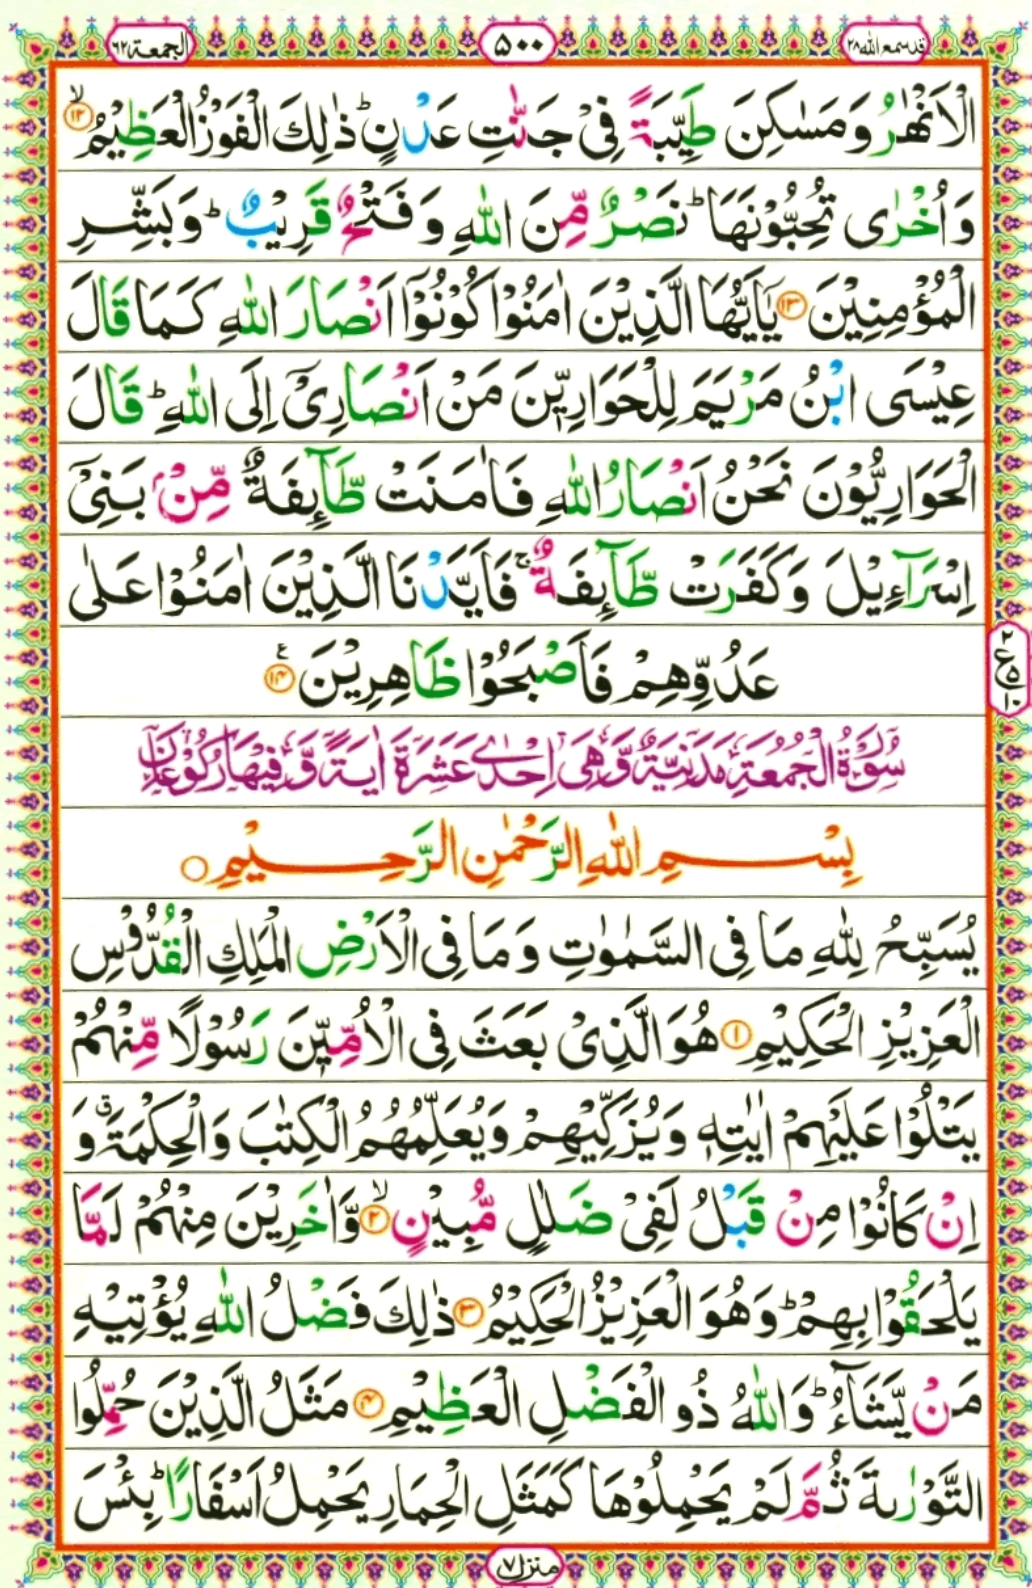 قد سمع الله ٢٨
۵۰۰
الجمعة ٦٢
الْاَنْهٰرُ وَمَسٰكِنَ طَيِّبَةً فِىْ جَنّٰتِ عَدْنٍ ؕ ذٰلِكَ الْفَوْزُ الْعَظِيْمُ ۙ‏﴿۱۲﴾
وَاُخْرٰى تُحِبُّوْنَهَا ؕ نَصْرٌ مِّنَ اللّٰهِ وَفَتْحٌ قَرِيْبٌ ؕ وَبَشِّرِ
الْمُؤْمِنِيْنَ ﴿۱۳﴾ يٰۤاَيُّهَا الَّذِيْنَ اٰمَنُوْا كُوْنُوْۤا اَنْصَارَ اللّٰهِ كَمَا قَالَ
عِيْسَى ابْنُ مَرْيَمَ لِلْحَوَارِيّٖنَ مَنْ اَنْصَارِىْۤ اِلَى اللّٰهِ ؕ قَالَ
الْحَوَارِيُّوْنَ نَحْنُ اَنْصَارُ اللّٰهِ فَاٰمَنَتْ طَّآٮِٕفَةٌ مِّنْۢ بَنِىْۤ
اِسْرَآءِيْلَ وَكَفَرَتْ طَّآٮِٕفَةٌ ۚ فَاَيَّدْنَا الَّذِيْنَ اٰمَنُوْا عَلٰى
عَدُوِّهِمْ فَاَصْبَحُوْا ظَاهِرِيْنَ ﴿۱۴﴾ ع
٢ ع ٥ ١٠
سُوْرَةُ الْجُمُعَةِ مَدَنِيَّةٌ وَّهِىَ اِحْدٰى عَشَرَةَ اٰيَةً وَّفِيْهَا رُكُوْعَانِ
بِسْمِ اللّٰهِ الرَّحْمٰنِ الرَّحِيْمِ ○
يُسَبِّحُ لِلّٰهِ مَا فِى السَّمٰوٰتِ وَمَا فِى الْاَرْضِ الْمَلِكِ الْقُدُّوْسِ
الْعَزِيْزِ الْحَكِيْمِ ﴿۱﴾ هُوَ الَّذِىْ بَعَثَ فِى الْاُمِّيّٖنَ رَسُوْلًا مِّنْهُمْ
يَتْلُوْا عَلَيْهِمْ اٰيٰتِهٖ وَيُزَكِّيْهِمْ وَيُعَلِّمُهُمُ الْكِتٰبَ وَالْحِكْمَةَ ۗ وَ
اِنْ كَانُوْا مِنْ قَبْلُ لَفِىْ ضَلٰلٍ مُّبِيْنٍ ۙ﴿۲﴾ وَّاٰخَرِيْنَ مِنْهُمْ لَمَّا
يَلْحَقُوْا بِهِمْ ؕ وَهُوَ الْعَزِيْزُ الْحَكِيْمُ ﴿۳﴾ ذٰلِكَ فَضْلُ اللّٰهِ يُؤْتِيْهِ
مَنْ يَّشَآءُ ؕ وَاللّٰهُ ذُو الْفَضْلِ الْعَظِيْمِ ﴿۴﴾ مَثَلُ الَّذِيْنَ حُمِّلُوا
التَّوْرٰٮةَ ثُمَّ لَمْ يَحْمِلُوْهَا كَمَثَلِ الْحِمَارِ يَحْمِلُ اَسْفَارًا ؕ بِئْسَ
منزل ٧